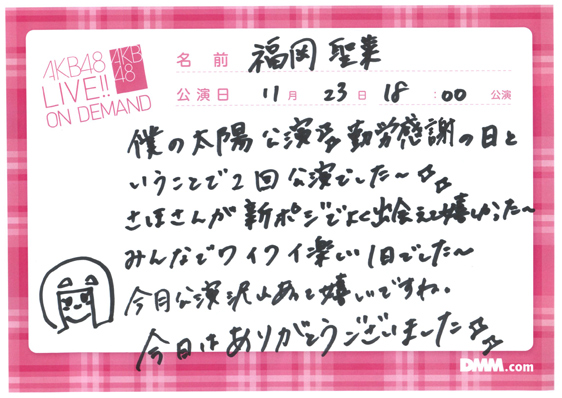 AKB48
LIVE!!
ON DEMAND
AKB
48
名前 福岡 聖菜
公演日 11月 23日 18:00 公演
僕の太陽公演 勤労感謝の日と
いうことで2回公演でした〜
さほさんが新ポジでよく出会えて嬉しかった〜
みんなでワイワイ楽しい1日でした〜
今月公演沢山あって嬉しいですね。
今日はありがとうございました
DMM.com